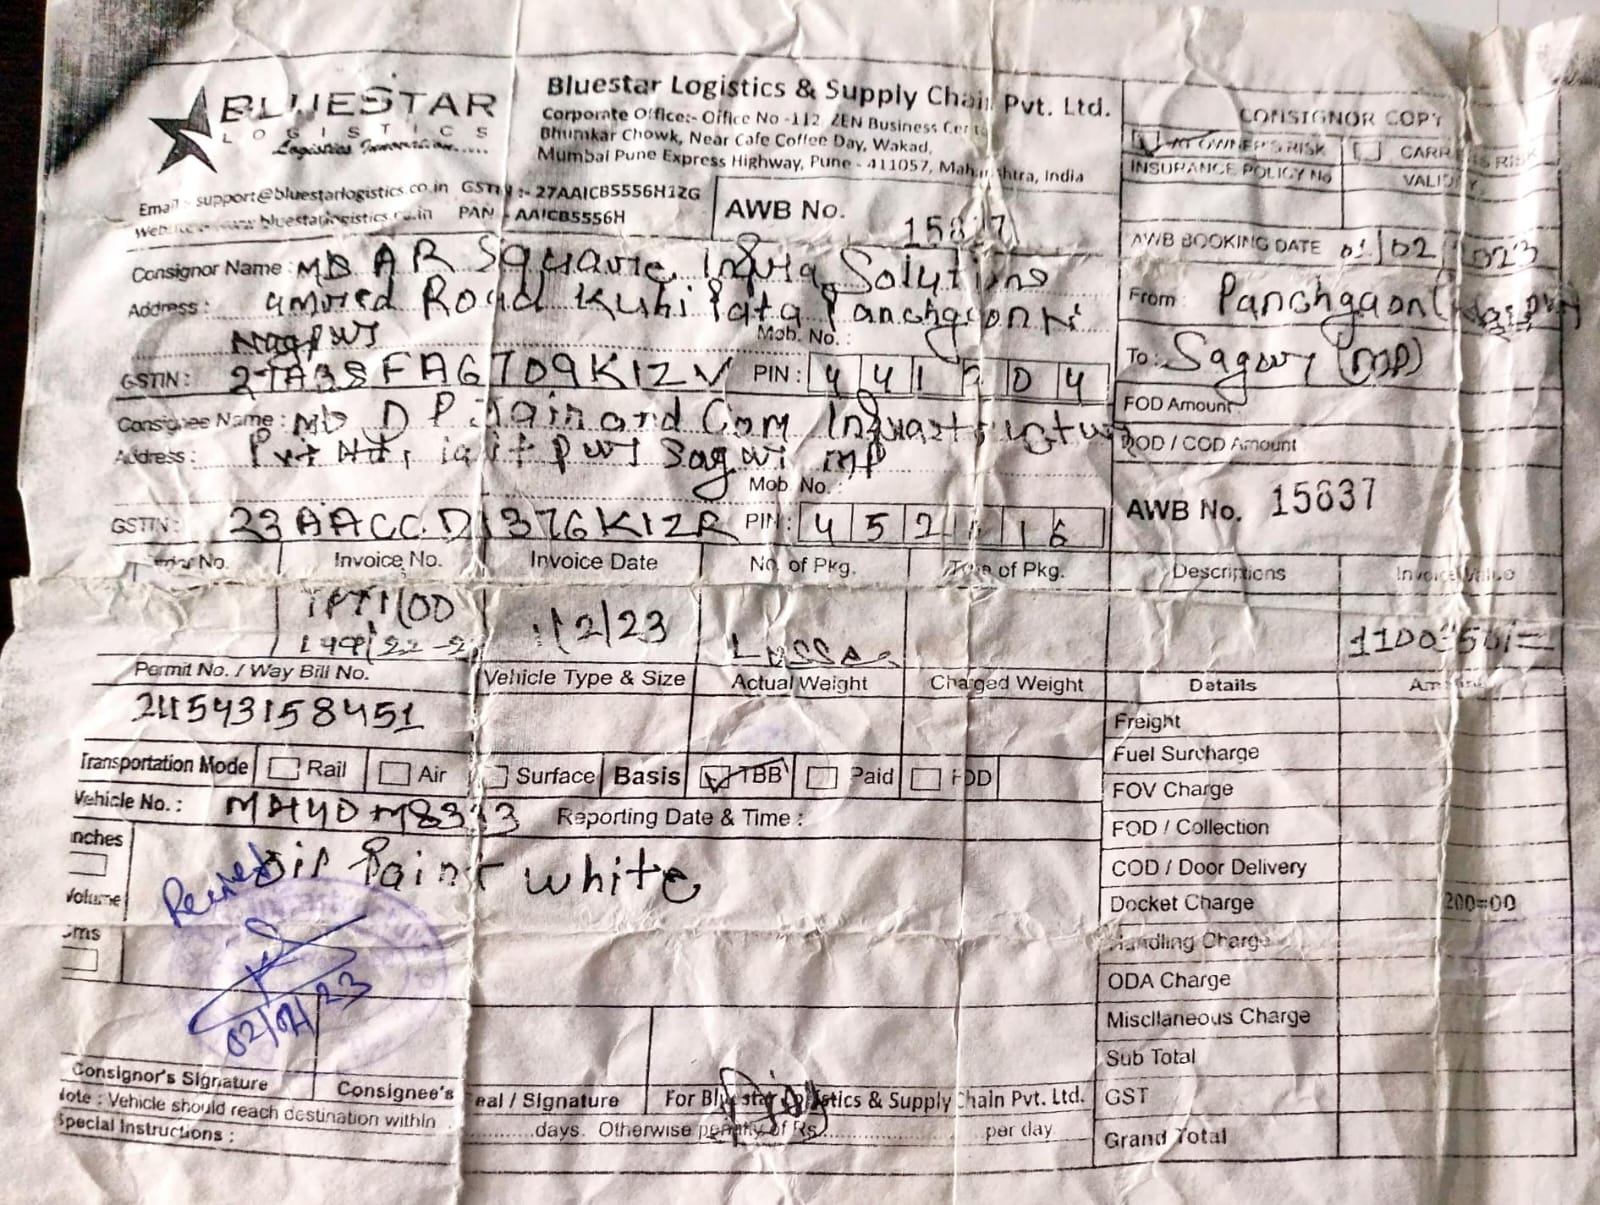 BLUESTAR
LOGISTICS
Logistics Innovation.....
Bluestar Logistics & Supply Chain Pvt. Ltd.
Corporate Office:- Office No -112, ZEN Business Center
Bhumkar Chowk, Near Cafe Coffee Day, Wakad,
Mumbai Pune Express Highway, Pune - 411057, Maharashtra, India
Email - support@bluestarlogistics.co.in GSTIN :- 27AAICB5556H1ZG
www.bluestarlogistics.co.in PAN - AAICB5556H
AWB No. 15837
CONSIGNOR COPY
AT OWNER'S RISK CARRIERS RISK
INSURANCE POLICY No VALIDITY
AWB BOOKING DATE 01/02/2023
From : Panchgaon
To : Sagour (MP)
FOD Amount
DOD / COD Amount
AWB No. 15837
Consignor Name : M/s AR Square Infra Solutions
Address : Road Kuhi Panchgaon
Nagpur Mob. No. :
GSTIN : PIN :
Consignee Name : M/s D P Jain and Com Infrastructure
Address : Pvt Sagour MP
Mob. No. :
GSTIN : 23AACCD1376K1ZR PIN :
No. Invoice No. Invoice Date No. of Pkg. Type of Pkg. Descriptions Invoice Value
1/2/23
Permit No. / Way Bill No. Vehicle Type & Size Actual Weight Charged Weight Details Amount
Transportation Mode Rail Air Surface Basis TBB Paid FOD
Vehicle No. : Reporting Date & Time :
Inches
Volume
Cms
Oil Paint white
Received
02/02/23
Freight
Fuel Surcharge
FOV Charge
FOD / Collection
COD / Door Delivery
Docket Charge 200=00
Handling Charge
ODA Charge
Miscllaneous Charge
Sub Total
GST
Grand Total
Consignor's Signature Consignee's Seal / Signature For Bluestar Logistics & Supply Chain Pvt. Ltd.
Note : Vehicle should reach destination within ........days. Otherwise penalty of Rs.................... per day
Special Instructions :